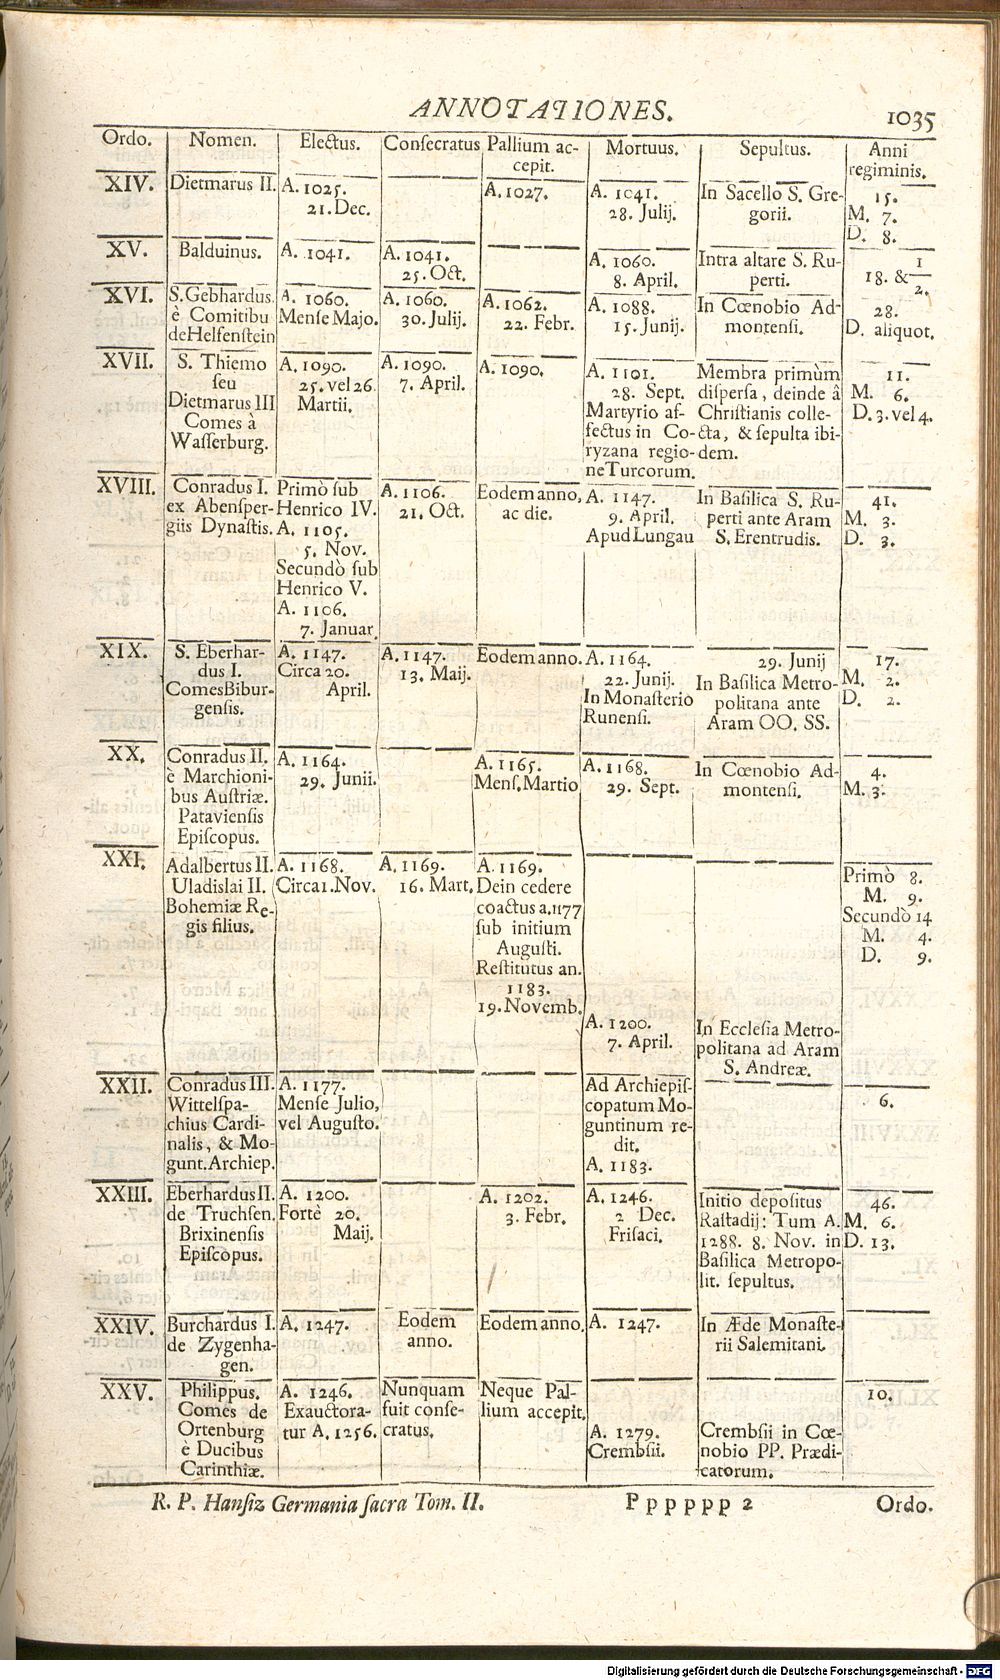 ANNOTATIONES.
1035
Ordo.
Nomen.
Electus.
Conſecratus
Pallium ac-
cepit.
Mortuus.
Sepultus.
Anni
regiminis.
XIV.
Dietmarus II.
A. 1025.
21. Dec.
A. 1027.
A. 1041.
28. Julij.
In Sacello S. Gre-
gorii.
15.
M. 7.
D. 8.
XV.
Balduinus.
A. 1041.
A. 1041.
25. Oct.
A. 1060.
8. April.
Intra altare S. Ru-
perti.
18. & 1/2.
XVI.
S. Gebhardus.
è Comitibu
de Helfenſtein
A. 1060.
Menſe Majo.
A. 1060.
30. Julij.
A. 1062.
22. Febr.
A. 1088.
15. Junij.
In Cœnobio Ad-
montenſi.
28.
D. aliquot.
XVII.
S. Thiemo
ſeu
Dietmarus III
Comes à
Waſſerburg.
A. 1090.
25. vel 26.
Martii.
A. 1090.
7. April.
A. 1090.
A. 1101.
28. Sept.
Martyrio af-
fectus in Co-
ryzana regio-
ne Turcorum.
Membra primùm
diſperſa, deinde â
Chriſtianis colle-
cta, & ſepulta ibi-
dem.
11.
M. 6.
D. 3. vel 4.
XVIII.
Conradus I.
ex Abenſper-
giis Dynaſtis.
Primò ſub
Henrico IV.
A. 1105.
5. Nov.
Secundò ſub
Henrico V.
A. 1106.
7. Januar.
A. 1106.
21. Oct.
Eodem anno,
ac die.
A. 1147.
9. April.
Apud Lungau
In Baſilica S. Ru-
perti ante Aram
S. Erentrudis.
41.
M. 3.
D. 3.
XIX.
S. Eberhar-
dus I.
Comes Bibur-
genſis.
A. 1147.
Circa 20.
April.
A. 1147.
13. Maij.
Eodem anno.
A. 1164.
22. Junij.
In Monaſterio
Runenſi.
29. Junij
In Baſilica Metro-
politana ante
Aram OO. SS.
17.
M. 2.
D. 2.
XX.
Conradus II.
è Marchioni-
bus Auſtriæ.
Patavienſis
Epiſcopus.
A. 1164.
29. Junii.
A. 1165.
Menſ. Martio
A. 1168.
29. Sept.
In Cœnobio Ad-
montenſi.
4.
M. 3.
XXI.
Adalbertus II.
Uladislai II.
Bohemiæ Re-
gis filius.
A. 1168.
Circa 1. Nov.
A. 1169.
16. Mart.
A. 1169.
Dein cedere
coactus a. 1177
ſub initium
Auguſti.
Reſtitutus an.
1183.
19. Novemb.
A. 1200.
7. April.
In Eccleſia Metro-
politana ad Aram
S. Andreæ.
Primò 8.
M. 9.
Secundò 14
M. 4.
D. 9.
XXII.
Conradus III.
Wittelſpa-
chius Cardi-
nalis, & Mo-
gunt. Archiep.
A. 1177.
Menſe Julio,
vel Auguſto.
Ad Archiepiſ-
copatum Mo-
guntinum re-
dit.
A. 1183.
6.
XXIII.
Eberhardus II.
de Truchſen.
Brixinenſis
Epiſcopus.
A. 1200.
Fortè 20.
Maij.
A. 1202.
3. Febr.
A. 1246.
2 Dec.
Friſaci.
Initio depoſitus
Raſtadij: Tum A.
1288. 8. Nov. in
Baſilica Metropo-
lit. ſepultus.
46.
M. 6.
D. 13.
XXIV.
Burchardus I.
de Zygenha-
gen.
A. 1247.
Eodem
anno.
Eodem anno.
A. 1247.
In Æde Monaſte-
rii Salemitani.
XXV.
Philippus.
Comes de
Ortenburg
è Ducibus
Carinthiæ.
A. 1246.
Exauctora-
tur A. 1256.
Nunquam
fuit conſe-
cratus.
Neque Pal-
lium accepit.
A. 1279.
Crembſii.
Crembſii in Cœ-
nobio PP. Prædi-
catorum.
10.
R. P. Hanſiz Germania ſacra Tom. II.
P p p p p p 2
Ordo.
Digitalisierung gefördert durch die Deutsche Forschungsgemeinschaft - DFG